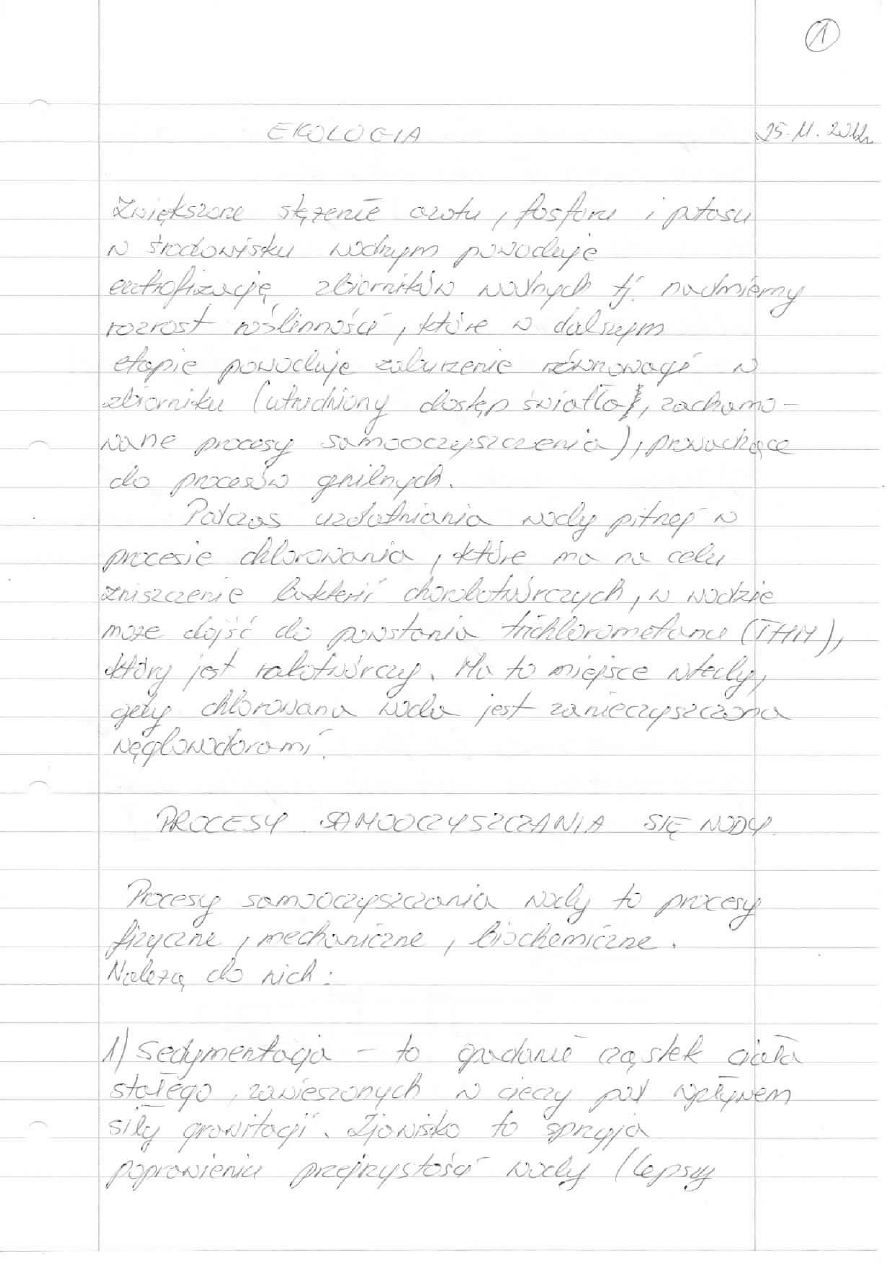 1
EKOLOGIA 25.11.2012r.
Zwiększone stężenie azotu, fosforu i potasu
w środowisku wodnym powoduje
eutrofizację zbiorników wodnych tj. nadmierny
rozrost roślinności, które w dalszym
etapie powoduje zaburzenie równowagi w
zbiorniku (utrudniony dostęp światła, zachamo-
wane procesy samooczyszczenia), prowadzące
do procesów gnilnych.
Podczas uzdatniania wody pitnej w
procesie chlorowania, które ma na celu
zniszczenie bakterii chorobotwórczych, w wodzie
może dojść do powstania trichlorometanu (THM),
który jest rakotwórczy. Ma to miejsce wtedy,
gdy chlorowana woda jest zanieczyszczona
węglowodorami.
PROCESY SAMOOCZYSZCZANIA SIĘ WODY
Procesy samooczyszczania wody to procesy
fizyczne, mechaniczne, biochemiczne.
Należą do nich:
1) Sedymentacja - to opadanie cząstek ciała
stałego, zawieszonych w cieczy pod wpływem
siły grawitacji. Zjawisko to sprzyja
poprawieniu przejrzystości wody (lepszy